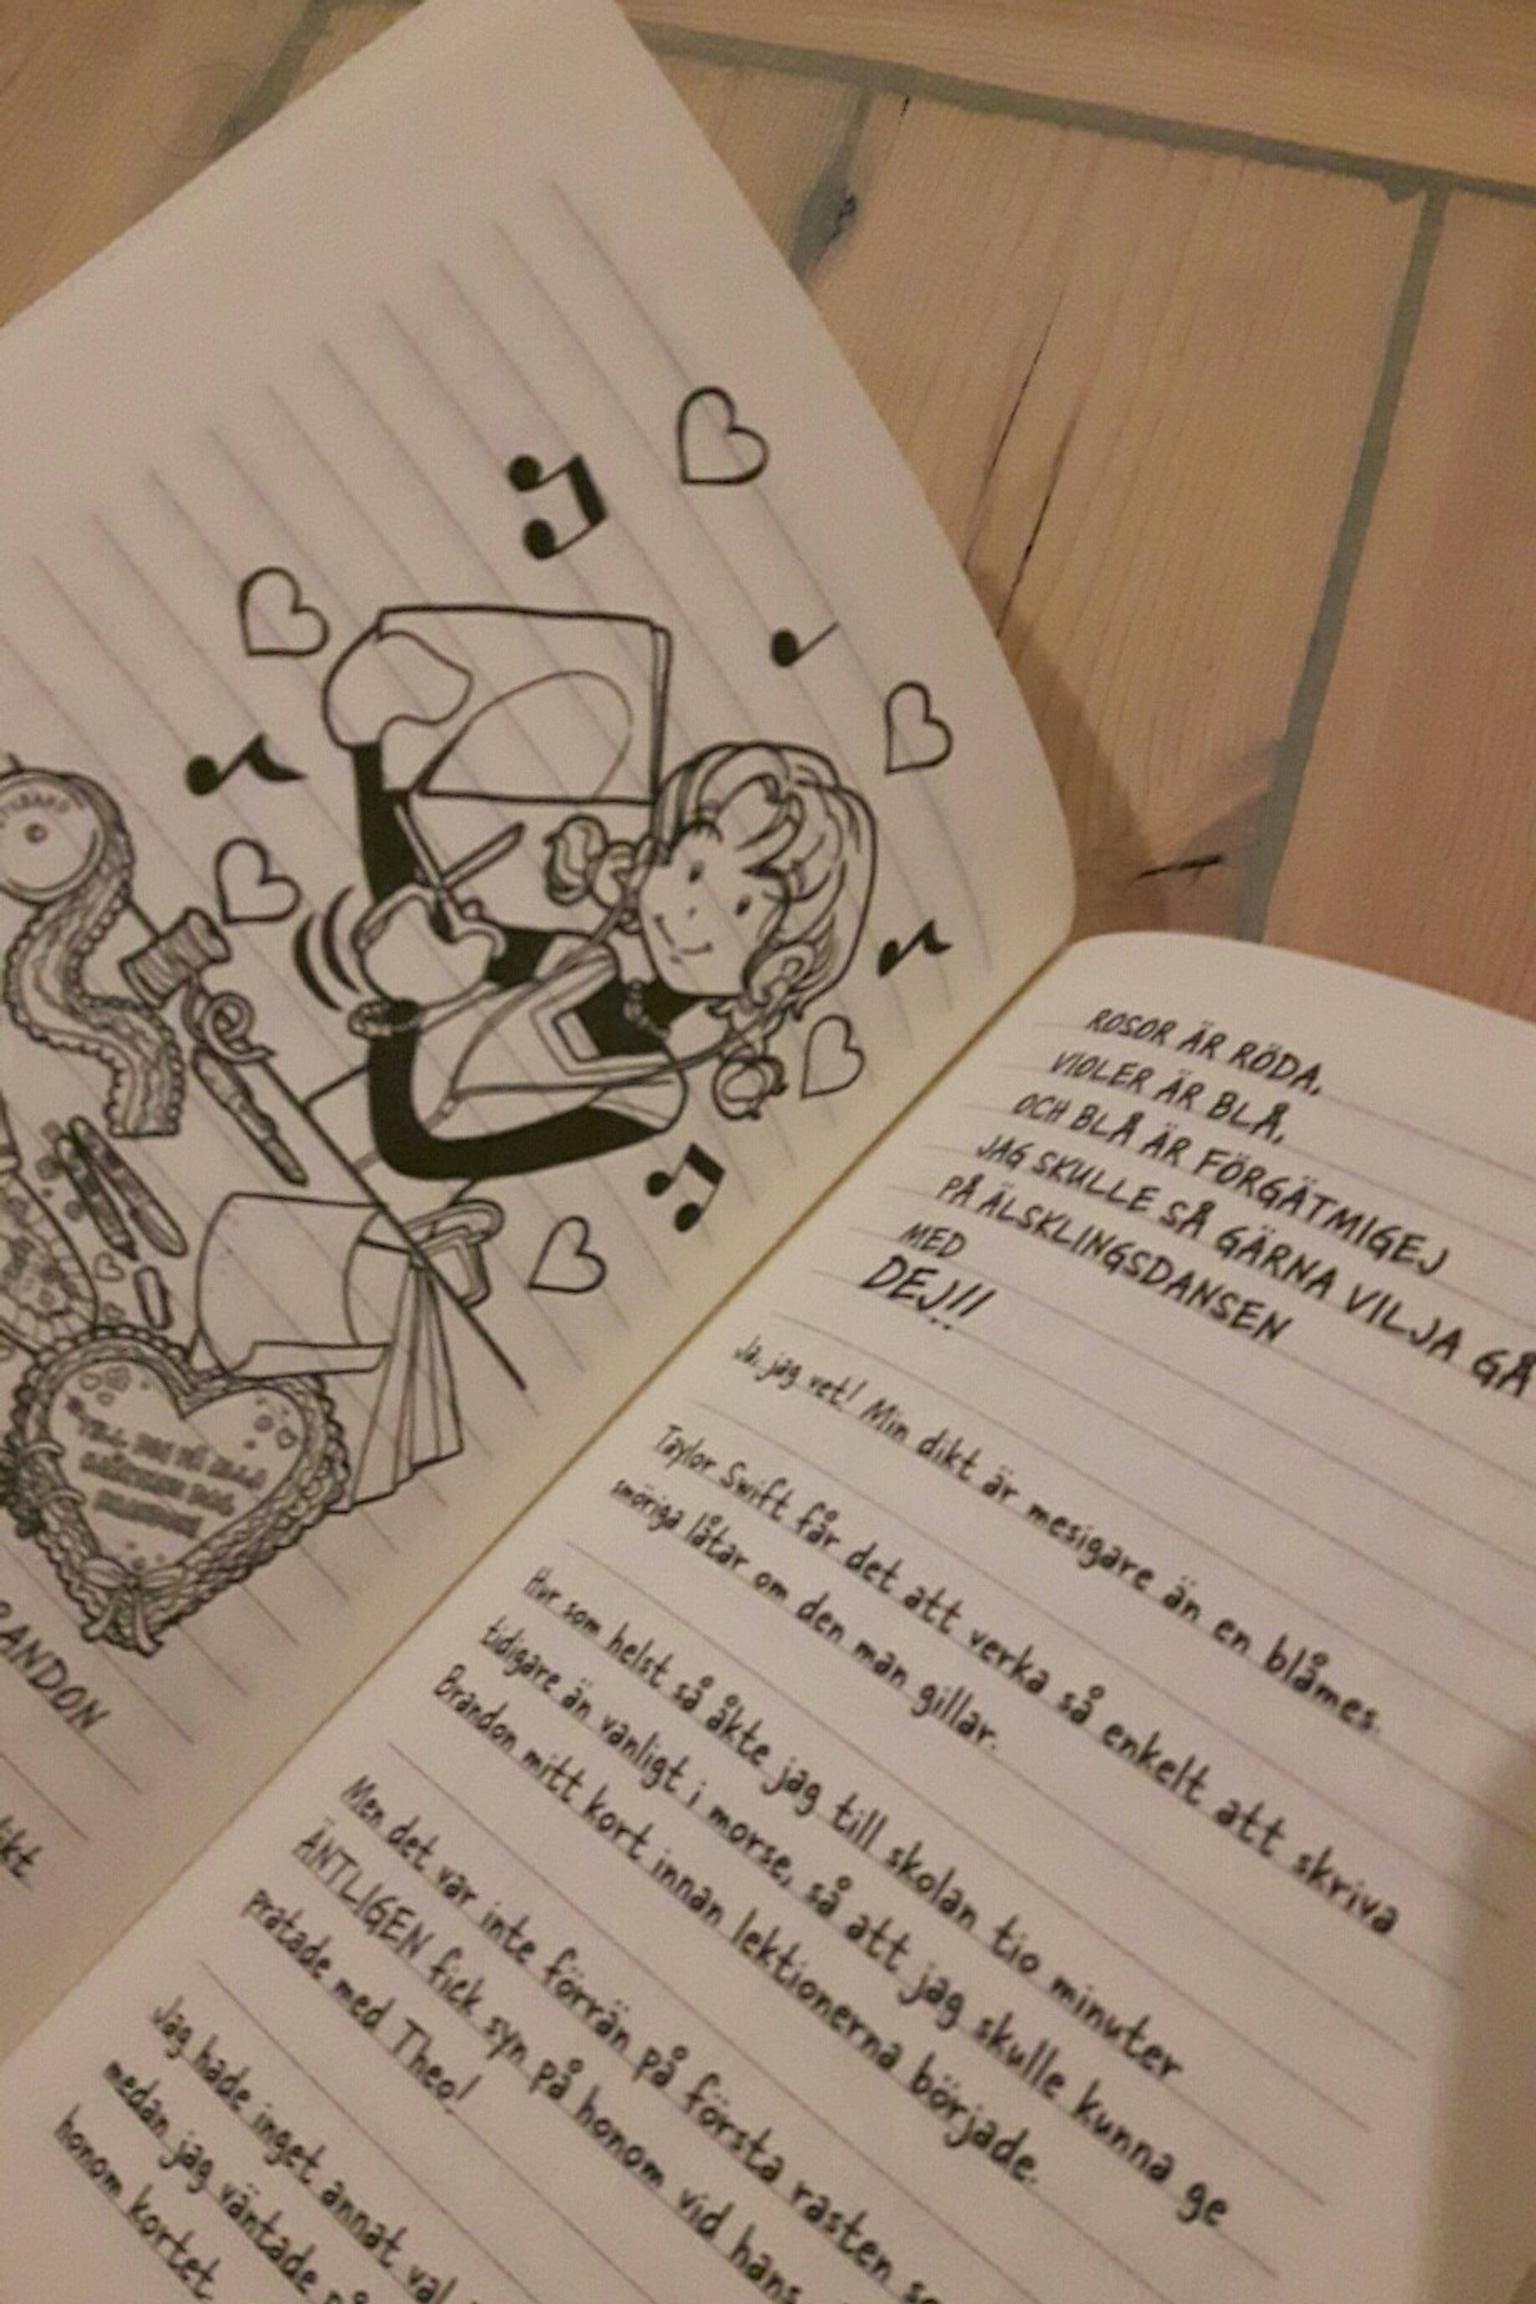 TILL DIG PÅ ALLA
HJÄRTANS DAG,
BRANDON
RANDON
ikt
ROSOR ÄR RÖDA,
VIOLER ÄR BLÅ,
OCH BLÅ ÄR FÖRGÄTMIGEJ
JAG SKULLE SÅ GÄRNA VILJA GÅ
PÅ ÄLSKLINGSDANSEN
MED
DEJ!!
Ja, jag vet! Min dikt är mesigare än en blåmes.
Taylor Swift får det att verka så enkelt att skriva
smöriga låtar om den man gillar.
Hur som helst så åkte jag till skolan tio minuter
tidigare än vanligt i morse, så att jag skulle kunna ge
Brandon mitt kort innan lektionerna började.
Men det var inte förrän på första rasten
ÄNTLIGEN fick syn på honom vid hans
pratade med Theo!
Jag hade inget annat val
medan jag väntade på
honom kortet.